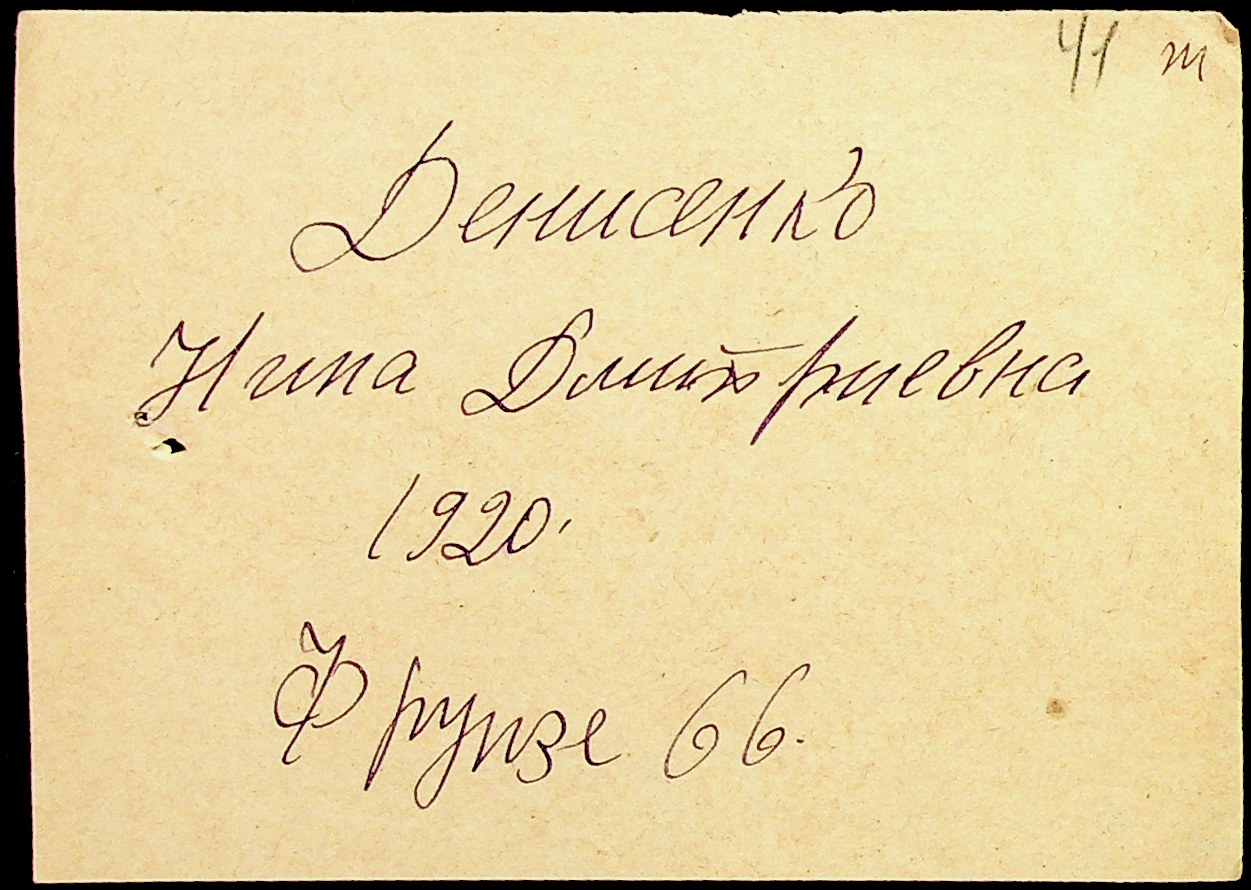 41 т
Денисенко
Нина Дмитриевна
1920.
Фрунзе 66.